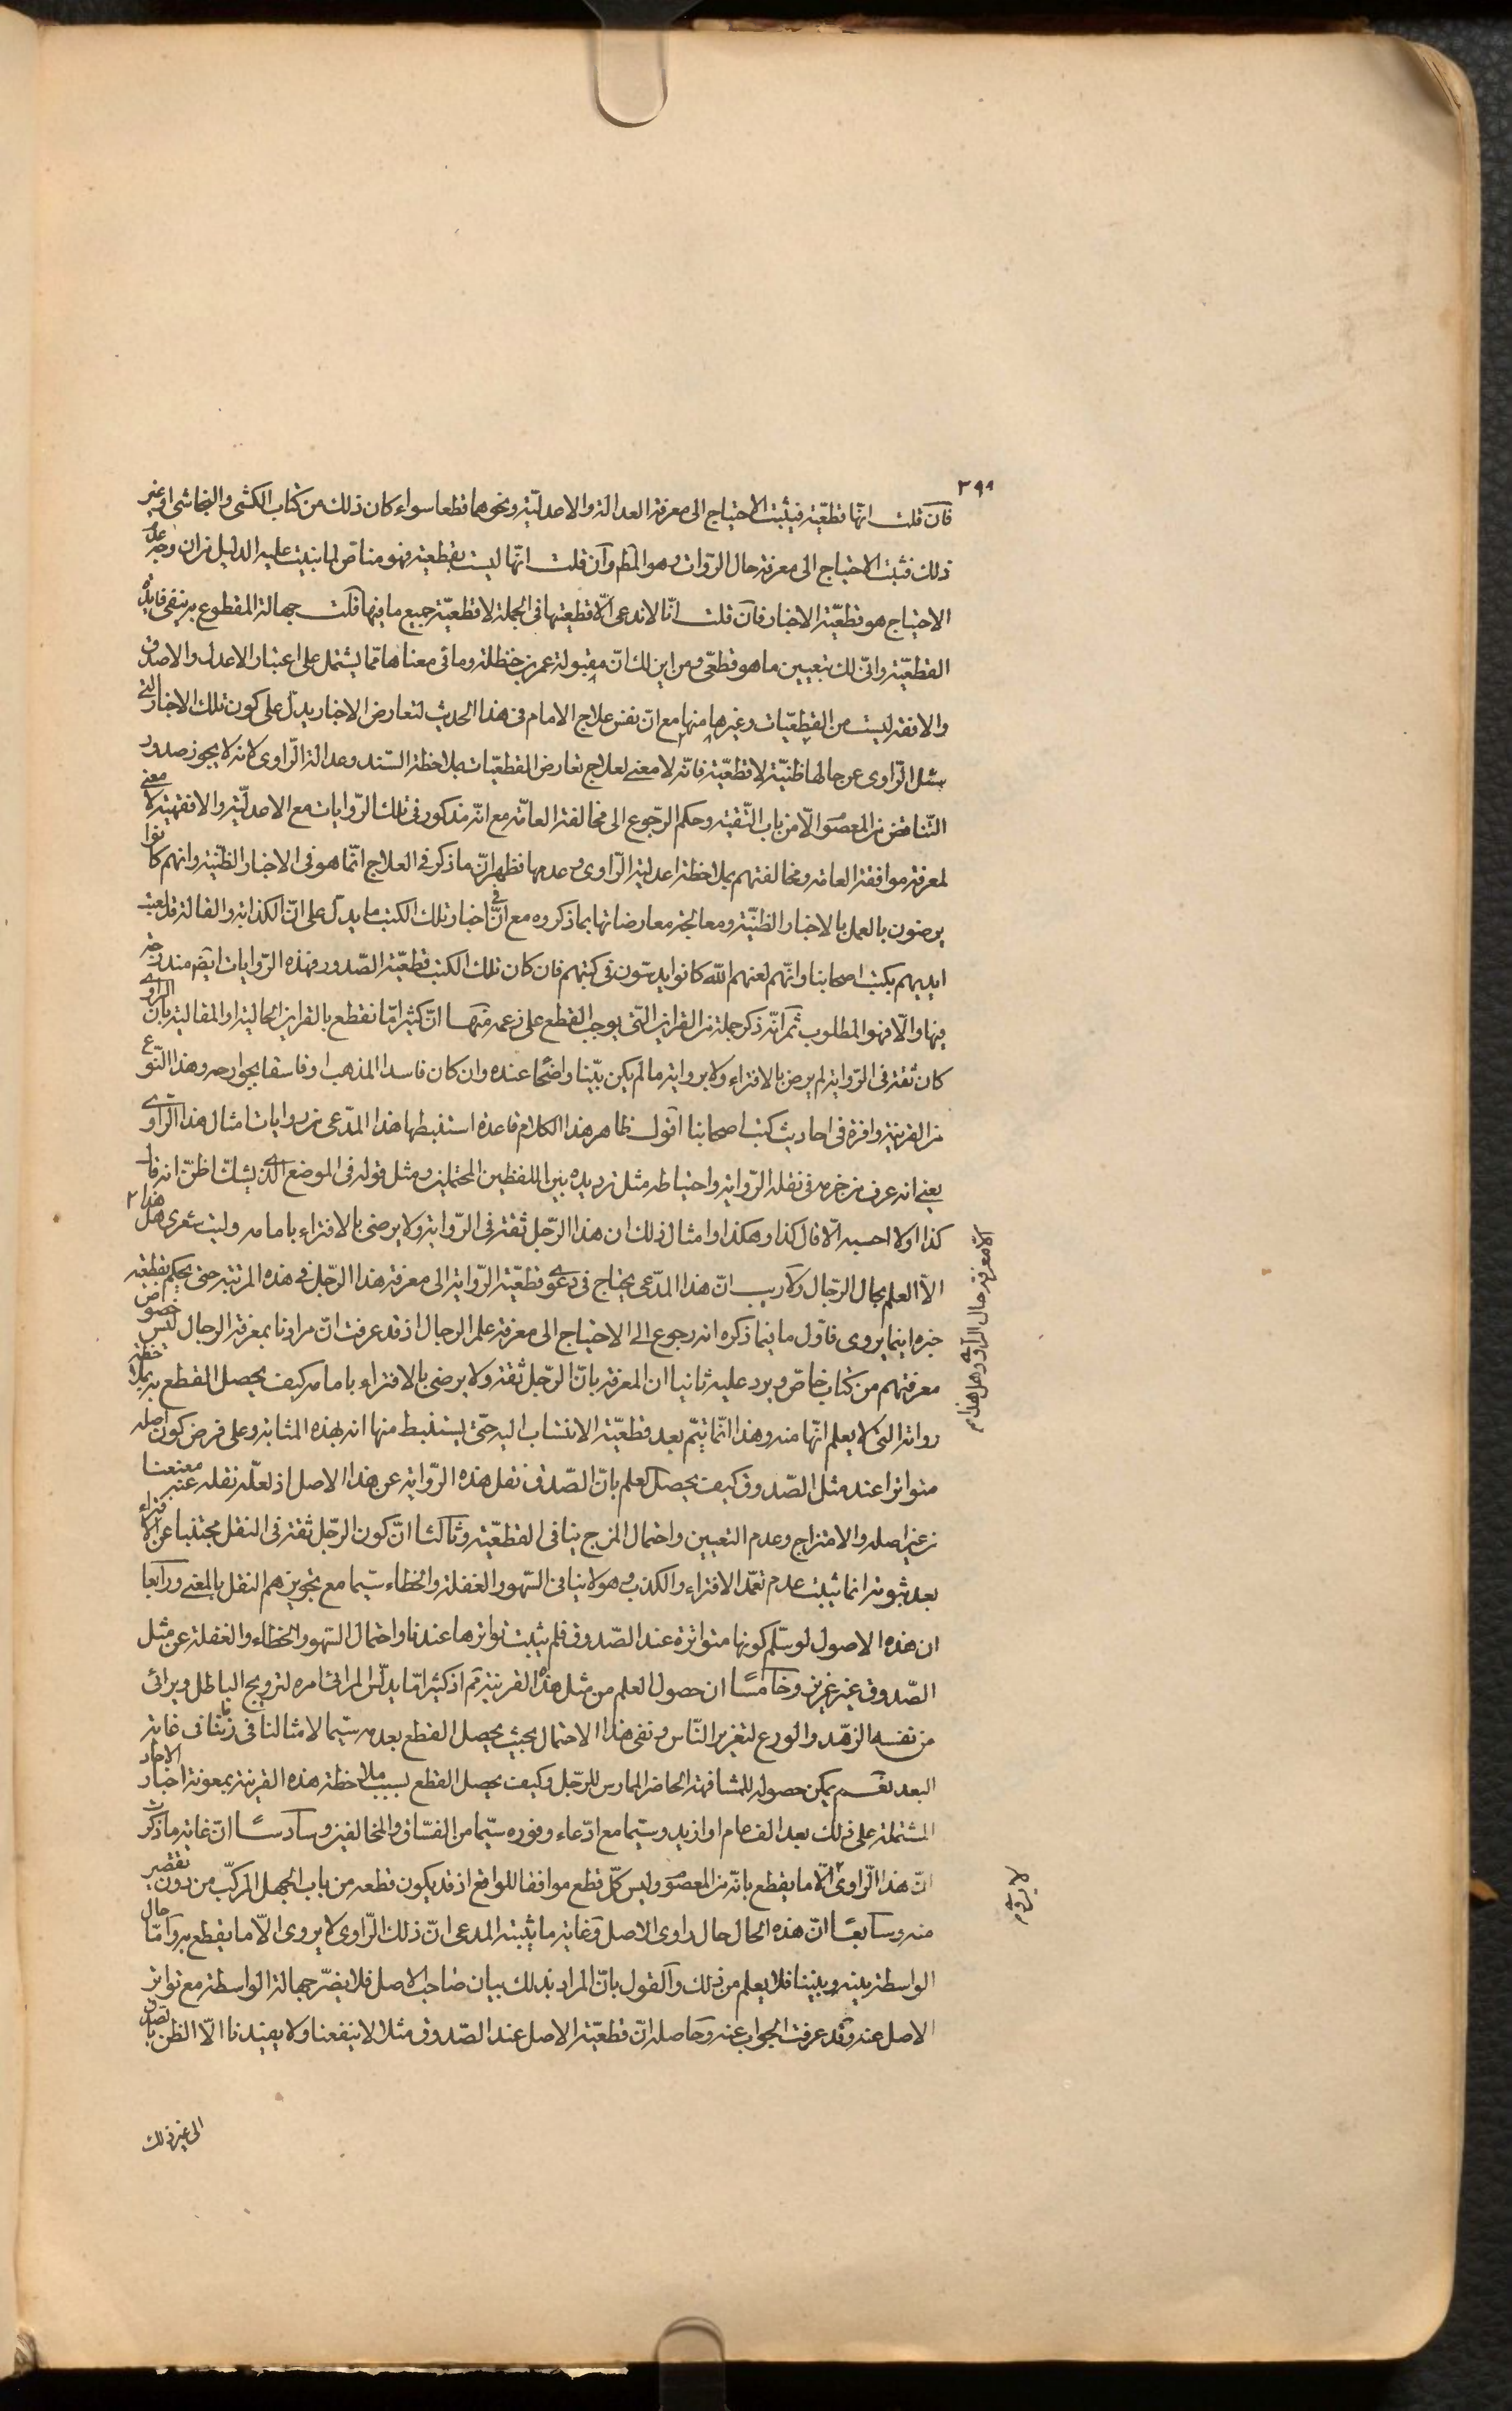 ٣٩٩
فان قلت انّها قطعيّة فيثبت الاحتياج الى معرفة العدالة والاعدليّة ونحوهما قطعا سواء كان ذلك من كتاب الكشى والنجاشى او غير
ذلك فثبت الاحتياج الى معرفة حال الرّوات وهو المط وان قلت انّها ليست بقطعية فهو مناقض لما بنيت عليه الدليل من ان وجه عدم
الاحتياج هو قطعيّة الاخبار فان قلت انّا لا ندعى الّا قطعيتها فى الجملة لا قطعيّة جميع ما فيها قلت جهالة المقطوع به ينفى فايدة
القطعيّة وانّى لك بتعيين ما هو قطعّى ومن اين لك انّ مقبولة عمر بن حنظلة وما فى معناها ممّا يشتمل على اعتبار الاعدل والاصدق
والافقه ليست من القطعيّات وغيرها منها مع انّ نفس علاج الامام فى هذا الحديث لتعارض الاخبار يدلّ على كون تلك الاخبار التى
سئل الرّاوى عن حالها ظنيّة لا قطعيّة فانّه لا معنى لعلاج تعارض القطعيّات بملاحظة السّند وعدالة الرّاوى لانه لا يجوز صدور
التّناقض من المعصوم الّا من باب التّقية وحكم الرّجوع الى مخالفة العامّة مع انّه مذكور فى تلك الرّوايات مع الاعدليّة والافقهيّة لا معنى
لمعرفة موافقة العامة ومخالفتهم بملاحظة اعدلية الرّاوى وعدمها فظهر انّ ما ذكر فى العلاج انّما هو فى الاخبار الظنّية وانهم كانوا
يرضون بالعمل بالاخبار الظنّيّة ومعالجة معارضاتها بما ذكروه مع انّ فى اخبار تلك الكتب ما يدلّ على انّ الكذابة والقالة قد لعبت
ايديهم بكتب اصحابنا وانّهم لعنهم اللّه كانوا يدسّون فى كتبهم فان كان تلك الكتب قطعيّة الصّدور فهذه الرّوايات ايضم مندرجة
فيها والّا فهو المطلوب ثم انّه ذكر جملة من القراين التّى يوجب القطع على زعمه منها انّ كثيرا مّا نقطع بالقراين الحالية او المقالية بانّ الراوى
كان ثقة فى الرّواية لم يرض بالافتراء ولا برواية ما لم يكن بيّنا واضحًا عنده وان كان فاسد المذهب او فاسقا بجوارحه وهذا النّوع
من القرينة وافرة فى احاديث كتب اصحابنا اقول ظاهر هذا الكلام قاعدة استنبطها هذا المدّعى من روايات امثال هذا الرّاوى
يعنى انه عرف من حزمه فى نقله الرّواية واحتياطه مثل ترديده بين اللفظين المحتملين ومثل قوله فى الموضع الّذى يشكّ اظنّ انه قال
كذا او لا احسبه الّا قال كذا وهكذا وامثال ذلك ان هذا الرّجل ثقة فى الرّواية ولا يرضى بالافتراء بامامه وليت شعرى هل هذا
الّا العلم بحال الرّجال ولا ريب انّ هذا المدّعى يحتاج فى دعوى قطعيّة الرّواية الى معرفة هذا الرّجل فى هذه المرتبة حتى يحكم بقطعية
خبره اينما يروى فاوّل ما فيما ذكره انه رجوع الى الاحتياج الى معرفة علم الرجال اذ قد عرفت انّ مرادنا بمعرفة الرجال ليس خصوص
معرفتهم من كتاب خاصّ ويرد عليه ثانيا ان المعرفة بانّ الرّجل ثقة ولا يرضى بالافتراء بامامه كيف يحصل القطع به بملاحظة
رواية التى لا يعلم انّها منه وهذا انّما يتمّ بعد قطعيّة الانتساب اليه حتّى يستنبط منها انه بهذه المثابة وعلى فرض كون اصله
متواترا عند مثل الصّدوق كيف يحصل العلم بانّ الصّدوق نقل هذه الرّواية عن هذا الاصل اذ لعلّه نقله عنه معنعنا
من غير اصله والامتزاج وعدم التعيين واحتمال المزج ينافى القطعيّة وثالثا انّ كون الرّجل ثقة فى النقل مجتنبا عن الافتراء
بعد ثبوته انما يثبت عدم تعمّد الافتراء والكذب وهو لا ينافى السّهو والغفلة والخطاء سيّما مع تجويزهم النقل بالمعنى ورابعا
ان هذه الاصول لو سلّم كونها متواترة عند الصّدوق فلم يثبت تواترها عندنا واحتمال السّهو والخطاء والغفلة عن مثل
الصّدوق غير عزيز وخامسًا ان حصول العلم من مثل هذه القرينة مم اذ كثيرا مّا يدلّس المرائى امره لترويج الباطل ويرائى
من نفسه الزّهد والورع لتغرير النّاس ونفى هذا الاحتمال بحيث يحصل القطع بعدمه سيّما لامثالنا فى زماننا فى غاية
البعد نعم يمكن حصوله للمشافهة الحاضر الممارس للرّجل وكيف يحصل القطع بسبب ملاحظة هذه القرينة بمعونة اخبار الاحاد
المشتملة على ذلك بعد الف عام او ازيد وسيّما مع ادّعاء وفوره سيّما من الفسّاق والمخالفين وسادسًا انّ غاية ما ذكرت
انّ هذا الرّاوى لا يروى الّا ما يقطع بانّه من المعصوم وليس كلّ قطع موافقا للواقع اذ قد يكون قطعه من باب الجهل المركّب من دون تقصير
منه وسابعًا انّ هذه الحال حال راوى الاصل وغاية ما يثبته المدعى انّ ذلك الرّاوى لا يروى الّا ما يقطع به وامّا حال
الواسطة بينه وبيننا فلا يعلم من ذلك والقول بانّ المراد بذلك بيان صاحب الاصل فلا يضرّ جهالة الواسطة مع تواتر
الاصل عنه وقد عرفت الجواب عنه وحاصله انّ قطعيّة الاصل عند الصّدوق مثلا لا ينفعنا ولا يفيدنا الّا الظن بالصدق
الا معرفة حال الراوى وهل هذا
لا يروى
الى غير ذلك